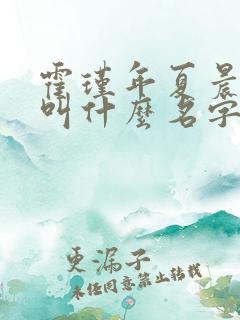 霍瑾年夏晨
叫什麼名字
更漏子
未经同意禁止转载